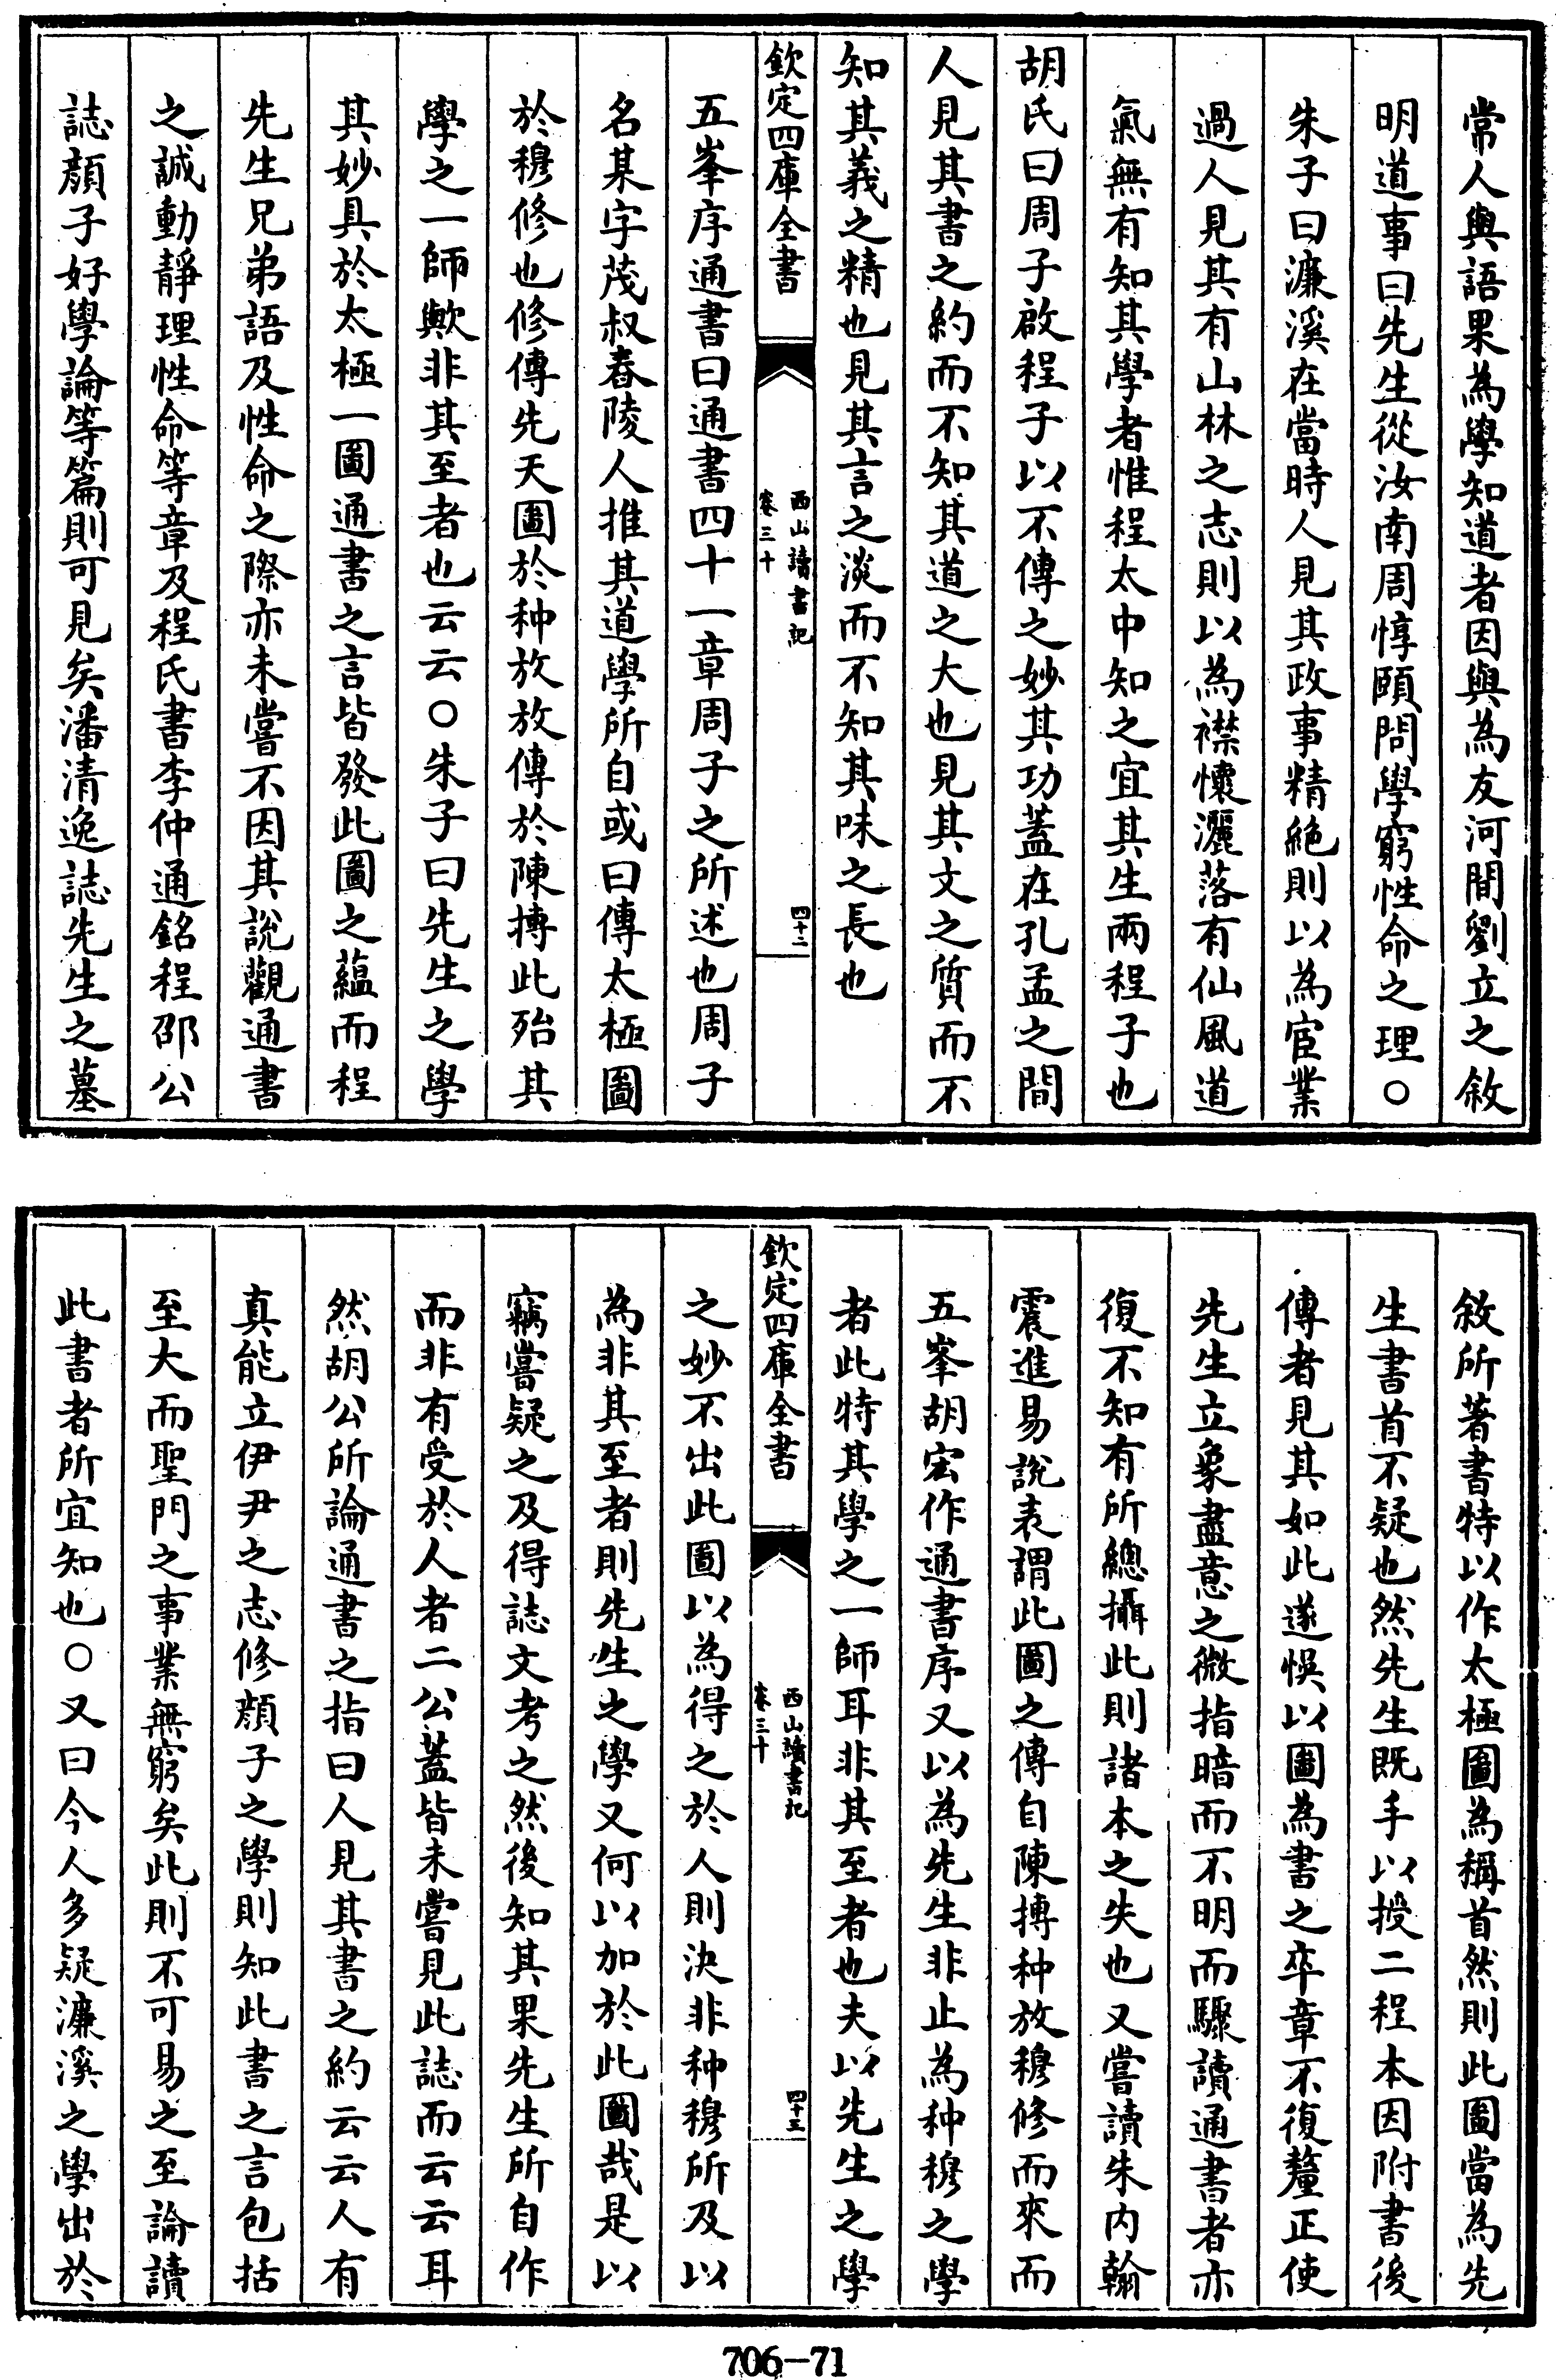 常人與語果為學知道者因與為友河間劉立之敘
明道事曰先生從汝南周惇頤問學窮性命之理○
朱子曰濂溪在當時人見其政事精絶則以為宦業
過人見其有山林之志則以為襟懷灑落有仙風道
氣無有知其學者惟程太中知之宜其生兩程子也
胡氏曰周子啟程子以不傳之妙其功蓋在孔孟之間
人見其書之約而不知其道之大也見其文之質而不
知其義之精也見其言之淡而不知其味之長也
欽定四庫全書
西山讀書記
卷三十
四十二
五峯序通書曰通書四十一章周子之所述也周子
名某字茂叔舂陵人推其道學所自或曰傳太極圖
於穆修也修傳先天圖於种放放傳於陳摶此殆其
學之一師歟非其至者也云云○朱子曰先生之學
其妙具於太極一圖通書之言皆發此圖之藴而程
先生兄弟語及性命之際亦未嘗不因其說觀通書
之誠動靜理性命等章及程氏書李仲通銘程邵公
誌顔子好學論等篇則可見矣潘清逸誌先生之墓
敘所著書特以作太極圖為稱首然則此圖當為先
生書首不疑也然先生既手以授二程本因附書後
傳者見其如此遂悞以圖為書之卒章不復釐正使
先生立象盡意之微指暗而不明而驟讀通書者亦
復不知有所總攝此則諸本之失也又嘗讀朱内翰
震進易說表謂此圖之傳自陳摶种放穆修而來而
五峯胡宏作通書序又以為先生非止為种穆之學
者此特其學之一師耳非其至者也夫以先生之學
欽定四庫全書
西山讀書記
卷三十
四十三
之妙不出此圖以為得之於人則決非种穆所及以
為非其至者則先生之學又何以加於此圖哉是以
竊嘗疑之及得誌文考之然後知其果先生所自作
而非有受於人者二公蓋皆未嘗見此誌而云云耳
然胡公所論通書之指曰人見其書之約云云人有
真能立伊尹之志修顔子之學則知此書之言包括
至大而聖門之事業無窮矣此則不可易之至論讀
此書者所宜知也○又曰今人多疑濂溪之學出於
706-71